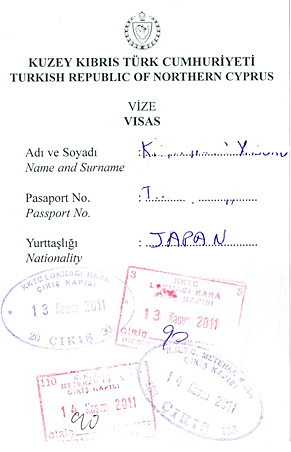 KUZEY KIBRIS TÜRK CUMHURİYETİ
TURKISH REPUBLIC OF NORTHERN CYPRUS
VİZE
VISAS
Adı ve Soyadı :
Name and Surname
Pasaport No. : T
Passport No.
Yurttaşlığı : JAPAN
Nationality
KKTC LOKMACI KARA
ÇIKIŞ KAPISI
13 Kasım 2011
20 ÇIKIŞ 20
3 3
KKTC
LOKMACI KARA
KAPISI
13 Kasım 2011
GİRİŞ
90
K.K.T.C. METEHAN
ÇIKIŞ KAPISI
14 Kasım 2011
20 ÇIKIŞ
110
METEHAN
GİRİŞ KAPISI
14 Kasım 2011
90
GİRİŞ